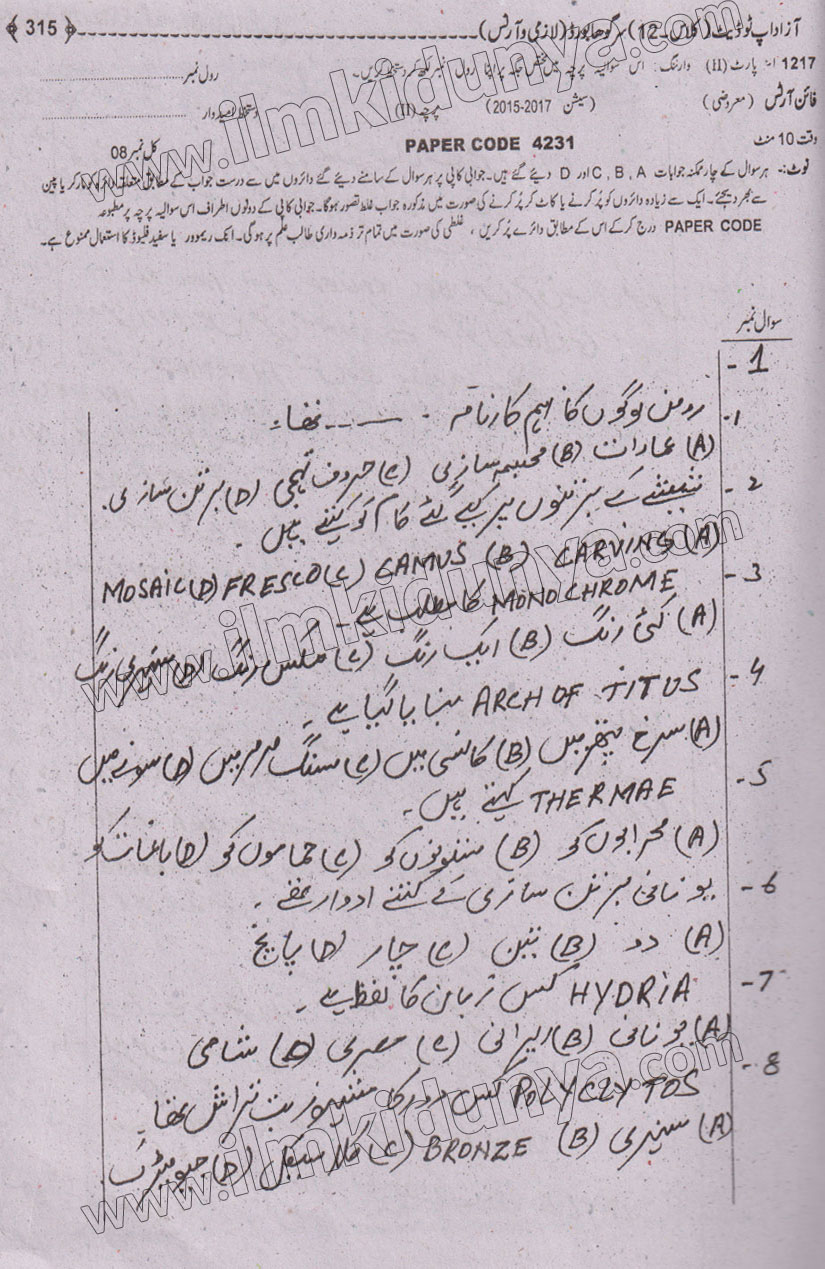 آزاد اپ ٹو ڈیٹ (کلاس ـ 12) سرگودھا بورڈ (لازمی و آرٹس) ﴿ 315 ﴾
1217 انٹر پارٹ (II) وارننگ: اس سوالیہ پرچہ میں مختص جگہ پر اپنا رول نمبر لکھ کر دستخط کریں۔ رول نمبر
فائن آرٹس (معروضی) (سیشن 2015-2017) پرچہ (II) دستخط امیدوار
وقت 10 منٹ PAPER CODE 4231 کل نمبر 08
نوٹ:- ہر سوال کے چار ممکنہ جوابات C , B , A اور D دیئے گئے ہیں۔ جوابی کاپی پر ہر سوال کے سامنے دیئے گئے دائروں میں سے درست جواب کے مطابق متعلقہ دائرہ کو مارکر یا پین
سے بھر دیجئے۔ ایک سے زیادہ دائروں کو پُر کرنے یا کاٹ کر پُر کرنے کی صورت میں مذکورہ جواب غلط تصور ہوگا۔ جوابی کاپی کے دونوں اطراف اس سوالیہ پرچہ پر مطبوعہ
PAPER CODE درج کر کے اس کے مطابق دائرے پُر کریں ، غلطی کی صورت میں تمام تر ذمہ داری طالب علم پر ہوگی۔ انک ریموور یا سفید فلیوڈ کا استعمال ممنوع ہے۔
سوال نمبر
1-
1- رومن لوگوں کا اہم کارنامہ ۔ ۔۔۔۔ تھا۔
(A) عمارات (B) مجسمہ سازی (C) حروف تہجی (D) برتن سازی۔
2- شیشے کے برتنوں میں کیے گئے کام کو کہتے ہیں۔
(A) CARVING (B) CAMUS (C) FRESCO (D) MOSAIC
3- MONOCHROME کا مطلب ہے۔
(A) کئی رنگ (B) ایک رنگ (C) مکس رنگ (D) سنہری رنگ
4- ARCH OF TITUS بنایا گیا ہے۔
(A) سرخ پتھر میں (B) کانسی میں (C) سنگ مرمر میں (D) سونے میں
5- THERMAE کہتے ہیں۔
(A) محرابوں کو (B) ستونوں کو (C) حماموں کو (D) باغات کو
6- یونانی برتن سازی کے کتنے ادوار تھے۔
(A) دو (B) تین (C) چار (D) پانچ
7- HYDRIA کس زبان کا لفظ ہے۔
(A) یونانی (B) ایرانی (C) مصری (D) شامی
8- POLYCLYTOS کس دور کا مشہور بت تراش تھا۔
(A) سنہری (B) BRONZE (C) کلاسیکل (D) جیومیٹرک
www.ilmkidunya.com
www.ilmkidunya.com
www.ilmkidunya.com